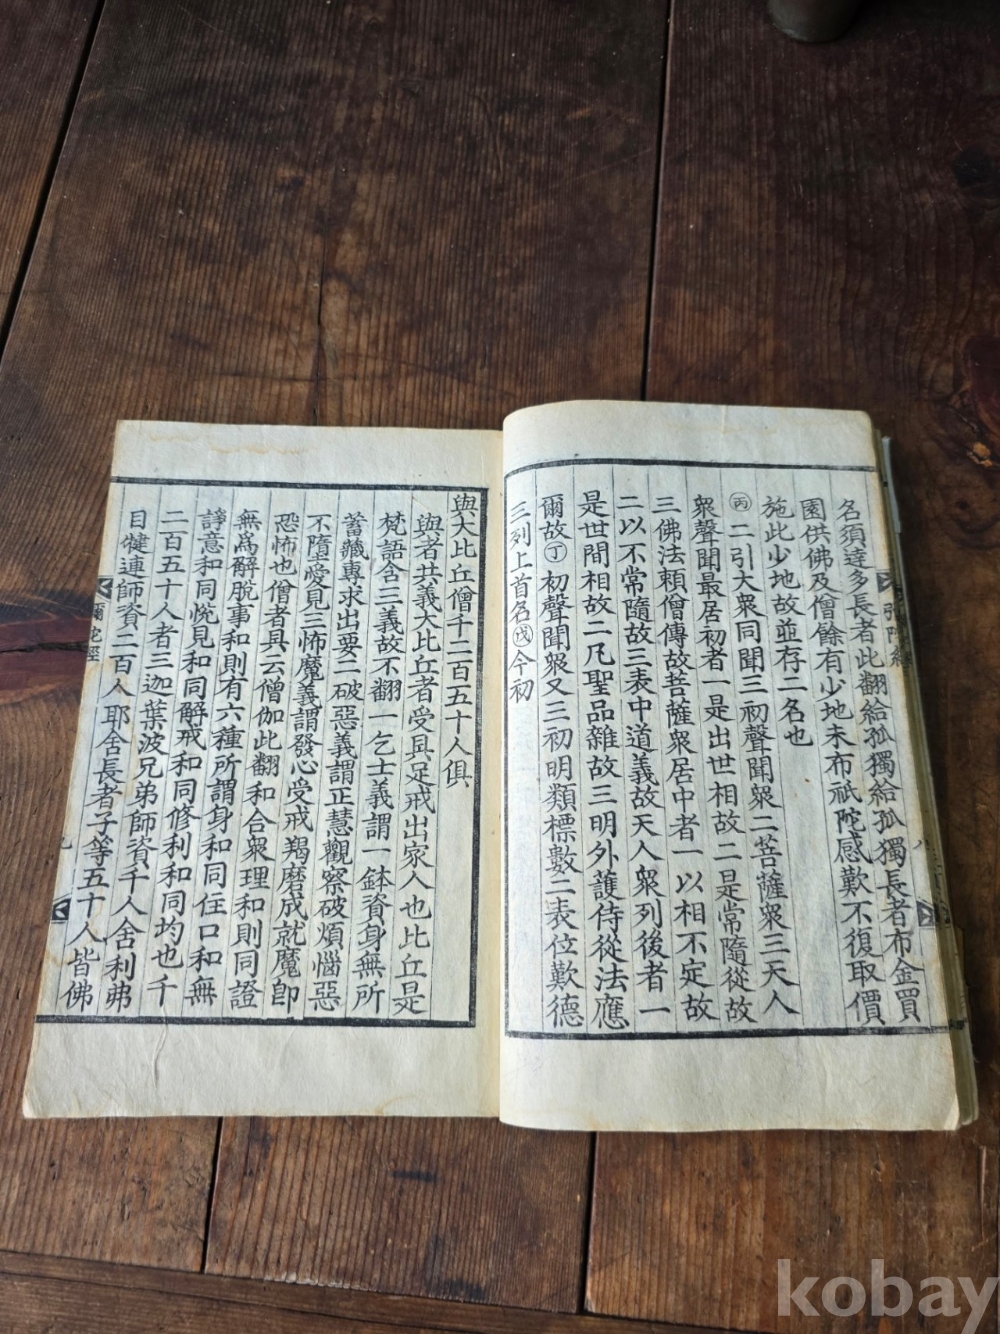 名須達多長者此翻給孤獨給孤獨長者布金買
園供佛及僧餘有少地未布祇陀感歎不復取價
施此少地故並存二名也
丙二引大衆同聞三初聲聞衆二菩薩衆三天人
衆聲聞最居初者一是出世相故二是常隨從故
三佛法賴僧傳故菩薩衆居中者一以相不定故
二以不常隨故三表中道義故天人衆列後者一
是世間相故二凡聖品雜故三明外護侍從法應
爾故丁初聲聞衆又三初明類標數二表位歎德
三列上首名戊今初
與大比丘僧千二百五十人俱
與者共義大比丘者受具足戒出家人也比丘是
梵語含三義故不翻一乞士義謂一鉢資身無所
蓄藏專求出要二破惡義謂正慧觀察破煩惱惡
不墮愛見三怖魔義謂發心受戒羯磨成就魔卽
恐怖也僧者具云僧伽此翻和合衆理和則同證
無爲解脫事和則有六種所謂身和同住口和無
諍意和同悅見和同解戒和同修利和同均也千
二百五十人者三迦葉波兄弟師資千人舍利弗
目犍連師資二百人耶舍長者子等五十人皆佛
彌陀經
九
kobay